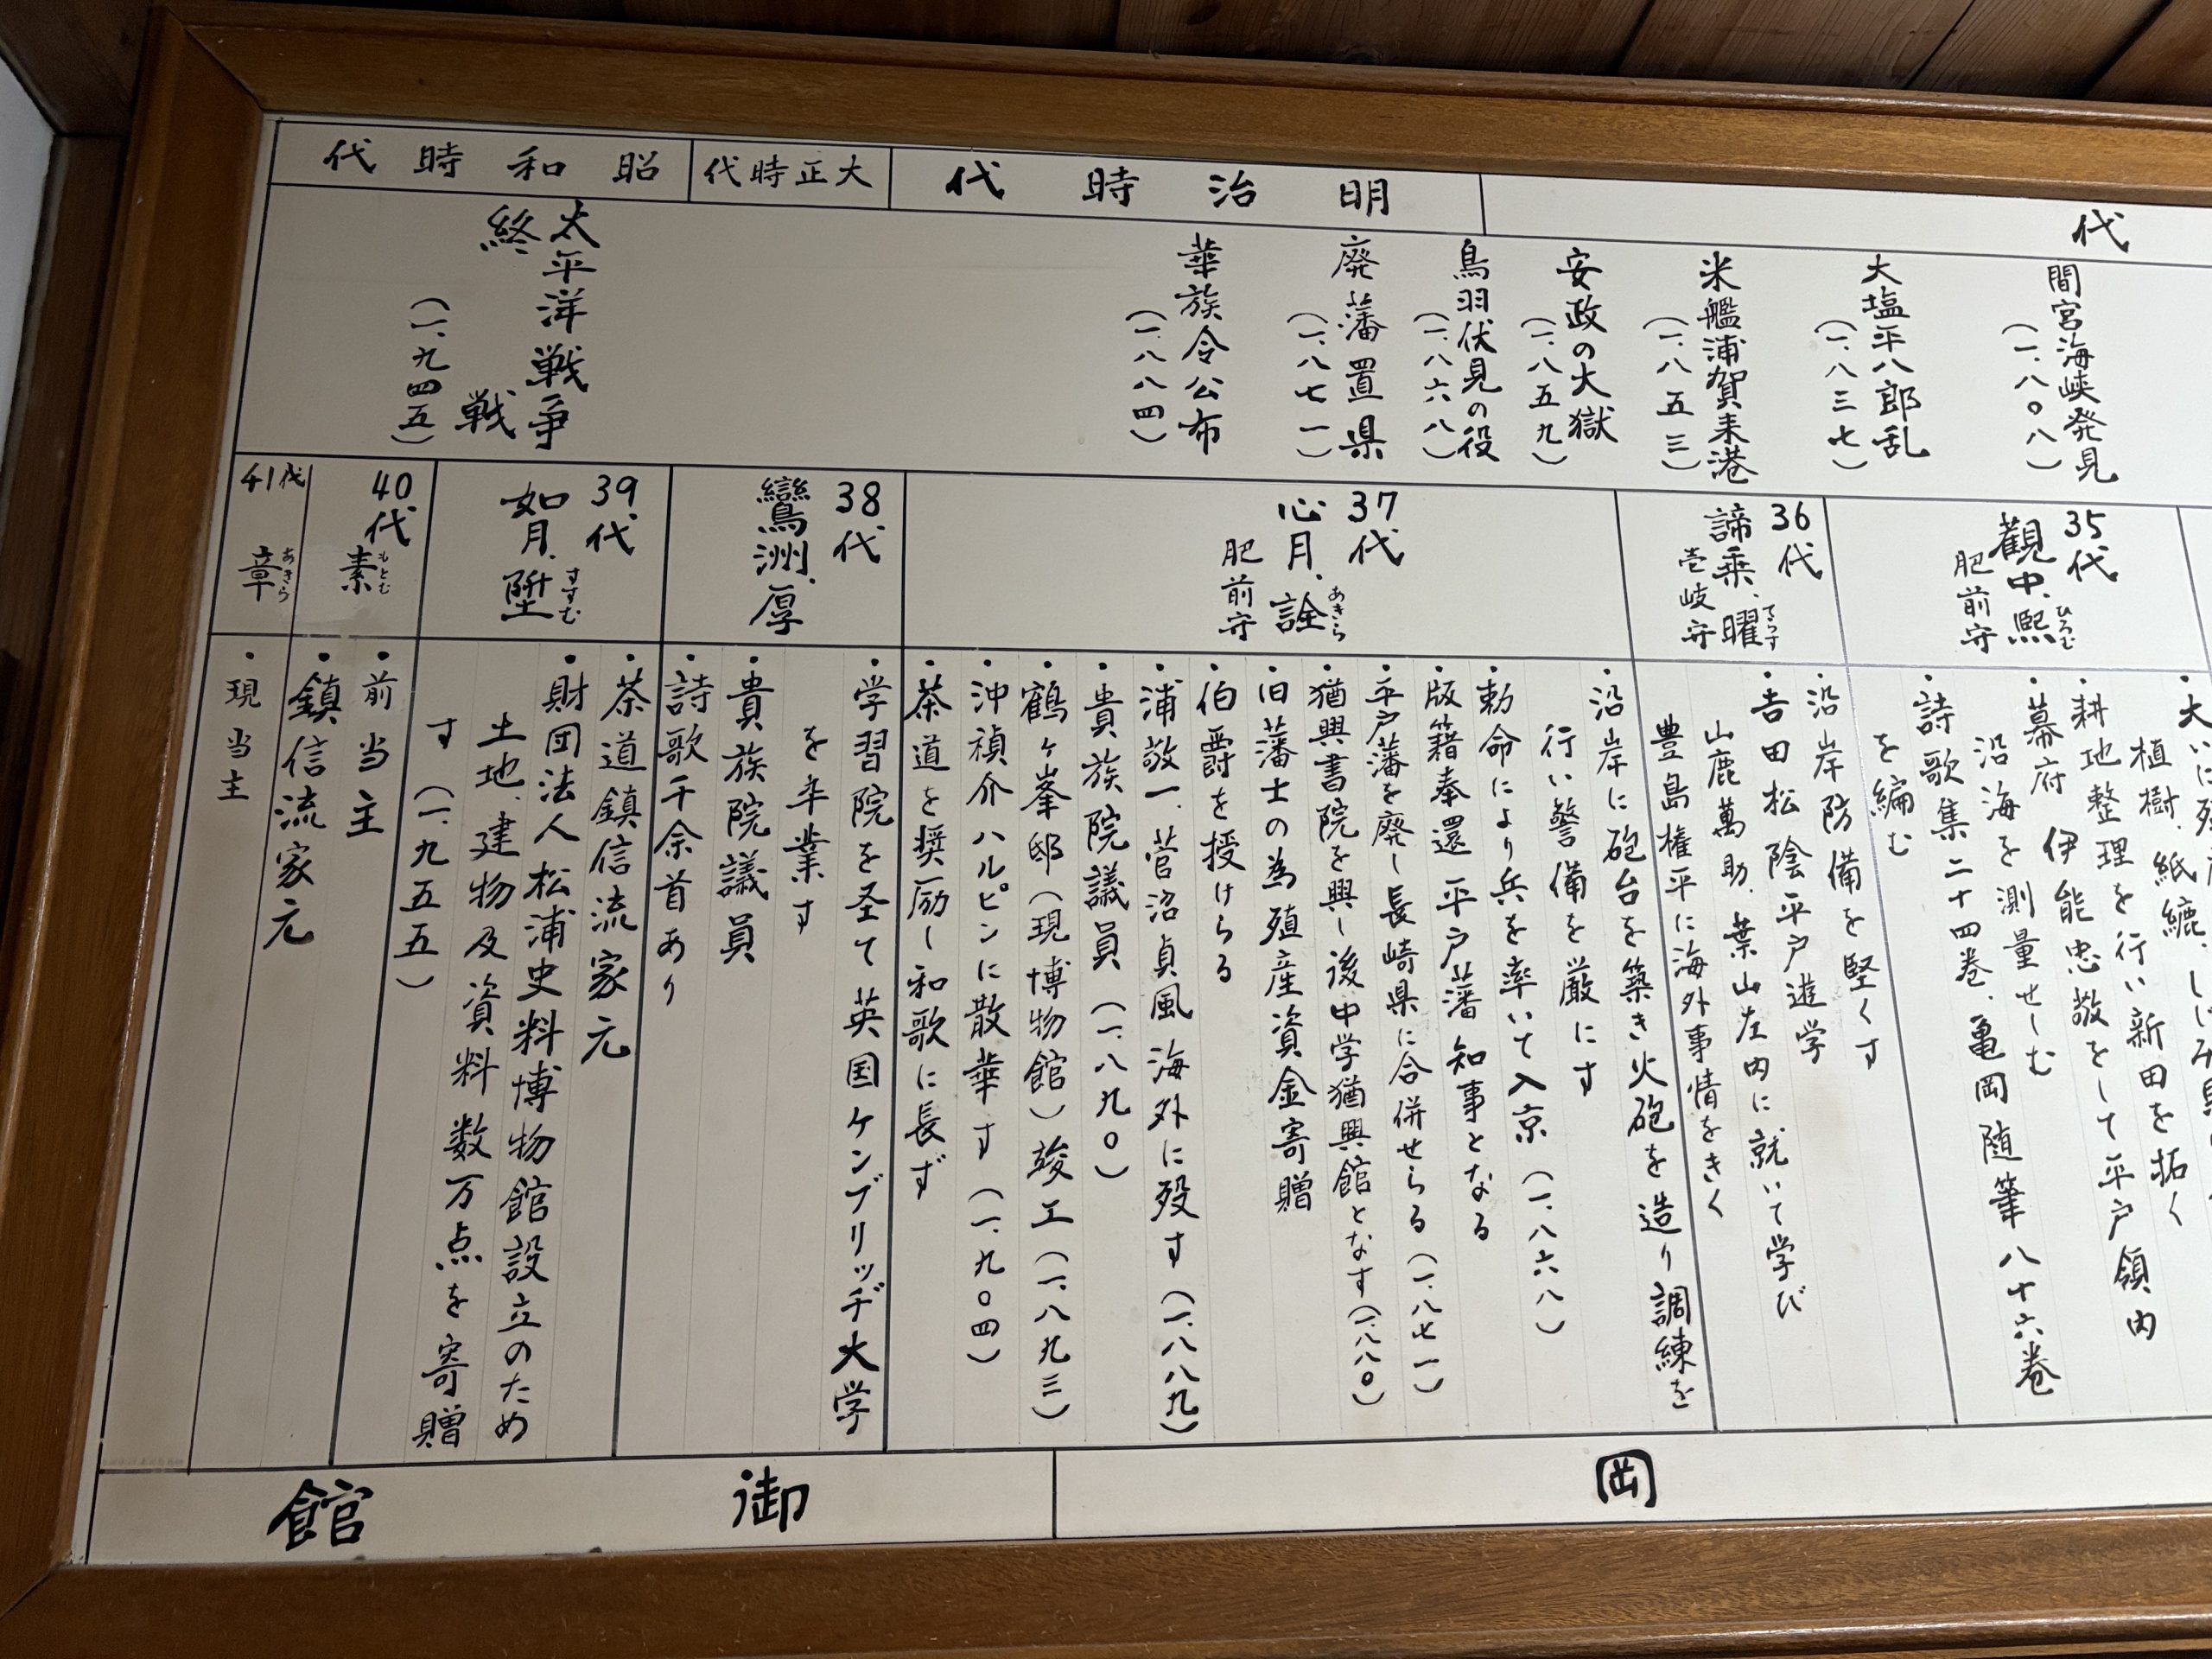 代
明治時代
大正時代
昭和時代
間宮海峡発見
(一、八〇八)
大塩平八郎乱
(一、八三七)
米艦浦賀来港
(一、八五三)
安政の大獄
(一、八五九)
鳥羽伏見の役
(一、八六八)
廃藩置県
(一、八七一)
華族令公布
(一、八八四)
太平洋戦争
終戦
(一、九四五)
35代
観中、熙
ひろむ
肥前守
36代
諦乗、曜
てらす
壱岐守
37代
心月、詮
あきら
肥前守
38代
鸞洲、厚
39代
如月、陞
すすむ
40代
素
もとむ
41代
章
あきら
植樹、紙纏、
・耕地整理を行い新田を拓く
・幕府 伊能忠敬をして平戸領内
沿海を測量せしむ
・詩歌集二十四巻、亀岡随筆八十六巻
を編む
・沿岸防備を堅くす
・吉田松陰平戸遊学
山鹿萬助、葉山左内に就いて学び
豊島権平に海外事情をきく
・沿岸に砲台を築き火砲を造り調練を
行い警備を厳にす
・勅命により兵を率いて入京(一、八六八)
・版籍奉還 平戸藩知事となる
・平戸藩を廃し長崎県に合併せらる(一、八七一)
・猶興書院を興し後中学猶興館となす(一、八八〇)
・旧藩士の為殖産資金寄贈
・伯爵を授けらる
・浦敬一、菅沼貞風 海外に歿す(一、八八九)
・貴族院議員(一、八九〇)
・鶴ヶ峯邸(現博物館)竣工(一、八九三)
・沖禎介ハルピンに散華す(一、九〇四)
・茶道を奨励し和歌に長ず
・学習院を圣て英国ケンブリッヂ大学
を卒業す
・貴族院議員
・詩歌千余首あり
・茶道鎮信流家元
・財団法人松浦史料博物館設立のため
土地、建物及資料数万点を寄贈
す(一、九五五)
・前当主
・鎮信流家元
・現当主
岡
御館